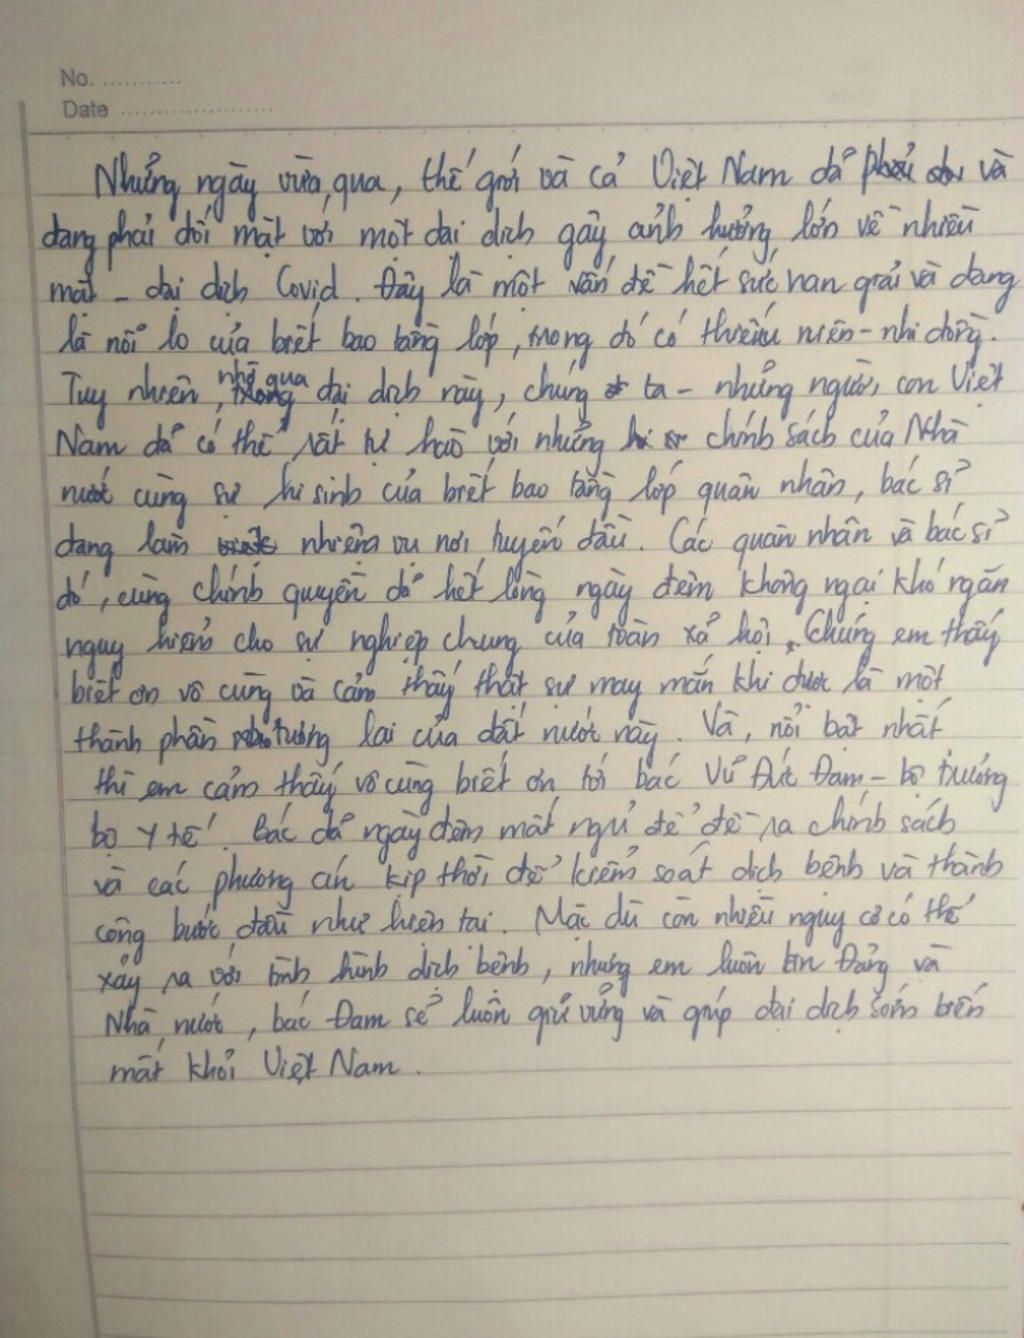 No. ............
Date ......................
Những ngày vừa qua, thế giới và cả Việt Nam đã và
đang phải đối mặt với một đại dịch gây ảnh hưởng lớn về nhiều
mặt - đại dịch Covid. Đây là một vấn đề hết sức nan giải và đang
là nỗi lo của biết bao tầng lớp, trong đó có thiếu niên - nhi đồng.
Tuy nhiên, nhờ qua đại dịch này, chúng ta - những người con Việt
Nam đã có thể rất tự hào với những chính sách của Nhà
nước cùng sự hi sinh của biết bao tầng lớp quân nhân, bác sĩ
đang làm nhiệm vụ nơi tuyến đầu. Các quân nhân và bác sĩ
đó, cùng chính quyền đã hết lòng ngày đêm không ngại khó ngăn
nguy hiểm cho sự nghiệp chung của toàn xã hội. Chúng em thấy
biết ơn vô cùng và cảm thấy thật sự may mắn khi được là một
thành phần tương lai của đất nước này. Và, nổi bật nhất
thì em cảm thấy vô cùng biết ơn tới bác Vũ Đức Đam - bộ trưởng
bộ Y tế! Bác đã ngày đêm mất ngủ để đề ra chính sách
và các phương án kịp thời để kiểm soát dịch bệnh và thành
công bước đầu như hiện tại. Mặc dù còn nhiều nguy cơ có thể
xảy ra với tình hình dịch bệnh, nhưng em luôn tin Đảng và
Nhà nước, bác Đam sẽ luôn giữ vững và giúp đại dịch sớm biến
mất khỏi Việt Nam.